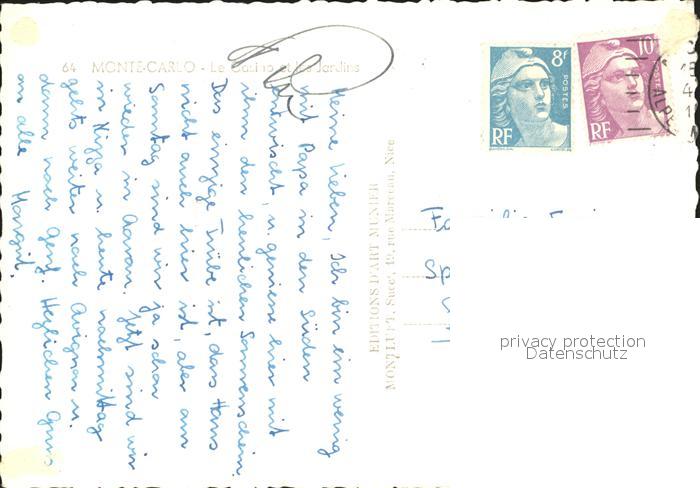 64 MONTE-CARLO - Le Casino et les Jardins
Meine Lieben, Ich bin ein wenig
mit Papa in den Süden
entwischt, u. geniesse hier mit
ihm den herrlichen Sonnenschein.
Das einzige Trübe ist, dass Hans
nicht auch hier ist, aber am
Samstag sind wir ja schon
wieder in Aarau. Jetzt sind wir
in Nizza u. heute nachmittag
gehts weiter nach Avignon u.
dann nach Genf. Herzlichen Gruss
an alle Margrit.
EDITIONS D'ART MUNIER
MONTLUET, Succr, 42, rue Marceau, Nice
8f
POSTES
RF
10
RF
ALP
Sp
privacy protection
Datenschutz